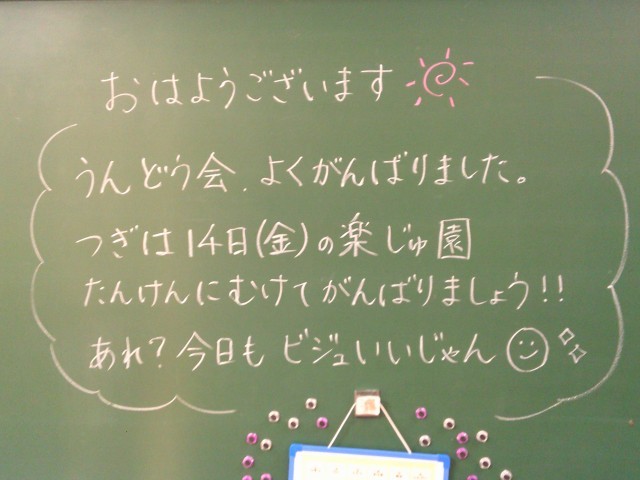 おはようございます
うんどう会、よくがんばりました。
つぎは14日(金)の楽じゅ園
たんけんにむけてがんばりましょう!!
あれ?今日もビジュいいじゃん